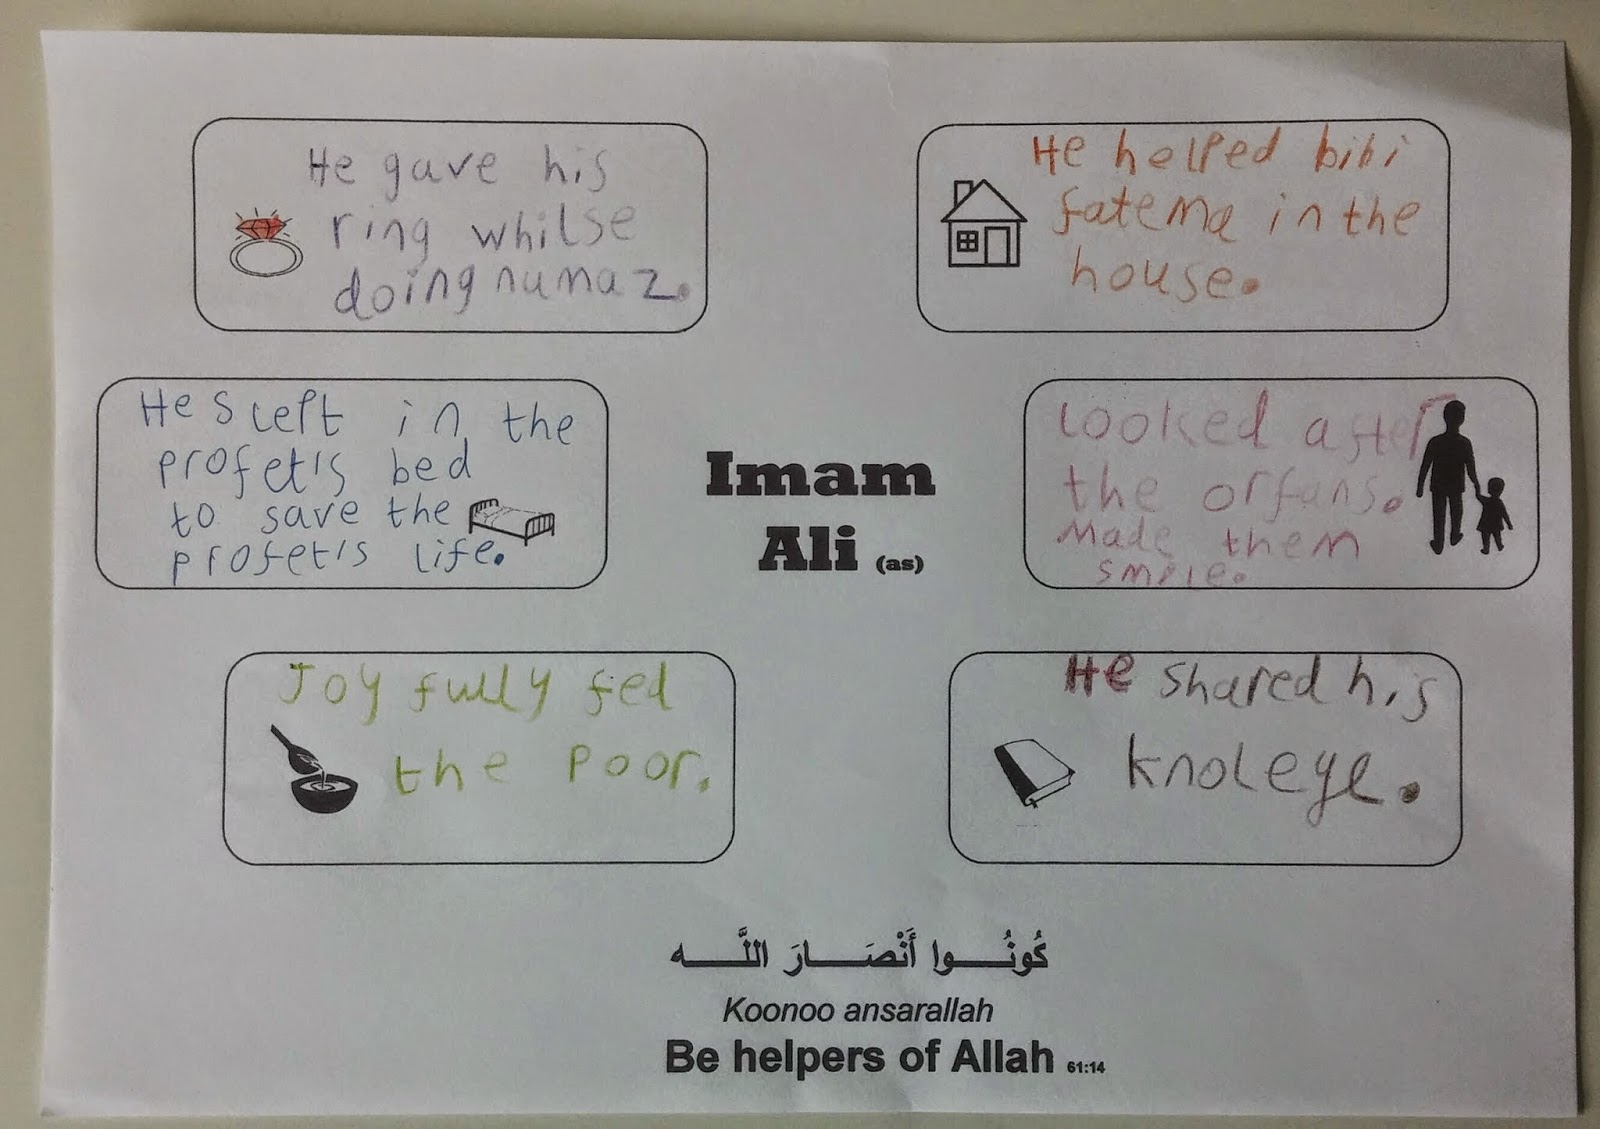 He gave his
ring whilse
doing numaz.
He helped bibi
fatema in the
house.
He sleft in the
profet's bed
to save the
profet's life.
Imam
Ali (as)
Looked after
the orfans.
Made them
smile.
Joy fully fed
the poor.
He shared his
knolege.
كُونُوا أَنْصَارَ اللَّه
Koonoo ansarallah
Be helpers of Allah 61:14